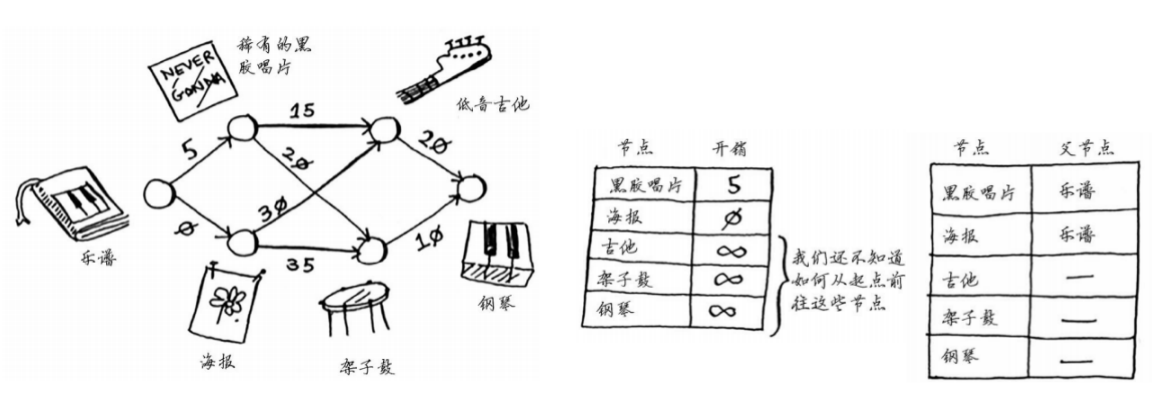 稀有的黑
胶唱片
NEVER
GONNA
低音吉他
15
5
20
20
30
0
35
10
乐谱
海报
架子鼓
钢琴
节点 开销
黑胶唱片 5
海报 0
吉他 ∞
架子鼓 ∞
钢琴 ∞
我们还不知道
如何从起点前
往这些节点
节点 父节点
黑胶唱片 乐谱
海报 乐谱
吉他 —
架子鼓 —
钢琴 —